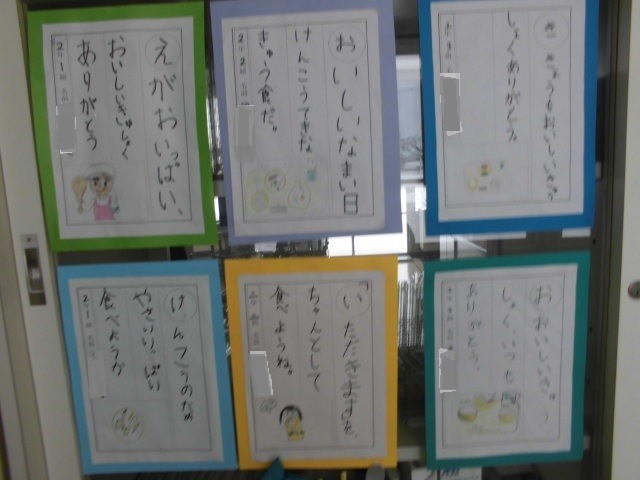 えがおいっぱい、
おいしいきゅうしょく
ありがとう
2年1組
おいしいなまい日
けんこうてきな
きゅう食だ。
2年2組
きょうもおいしいきゅう
しょくありがとう。
けんこうのため
やさいいっぱい
食べようか
2年1組
「いただきます」を、
ちゃんとして
食べようね。
おいしいきゅう
しょくいつも
ありがとう。